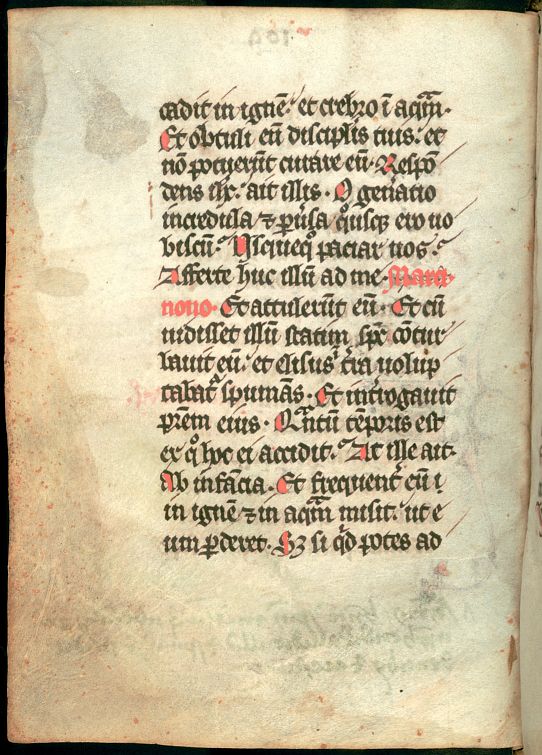 cadit in ignē. et crebro ī aquā.
Et obtuli eū disciplis tuis. et
nō potuerūt curare eū. Respō
dens ihc. ait illis. O gen̄atio
incredula ⁊ pūsa qͦusqꝫ ero uo
biscū. Usquequo patiar uos.
Afferte huc illū ad me. Marci
nono. Et attulerūt eū. Et cū
uidisset illū statim sp̄c cōtur
bauit eū. et elisus ī t̄ra uolup
tabat᷑ spumās. Et int̄rogauit
pr̄em eius. Quantū tēporis est
ex qͦ hoc ei accidit. At ille ait.
Ab infācia. Et frequent̄ eū i
in ignē ⁊ in aquā misit. ut e
um ꝑderet. Sꝫ si qͥd potes ad